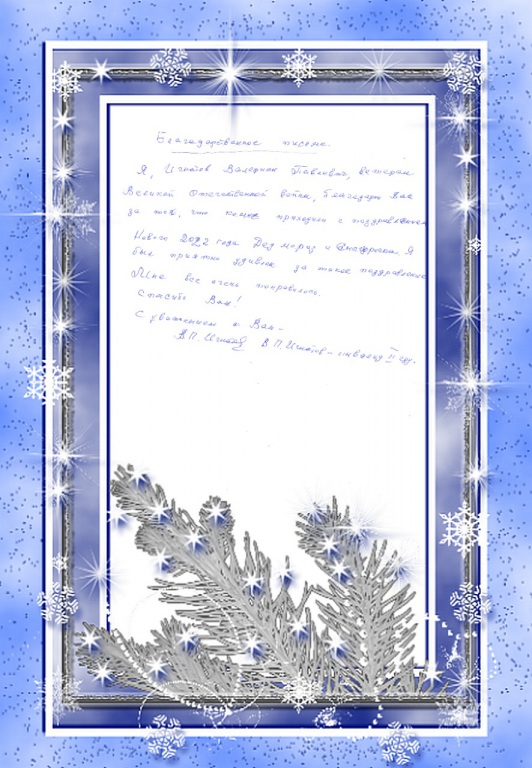 Благодарственное письмо.
Я, Игнатов Валериан Павлович, ветеран
Великой Отечественной войны, благодарю Вас
за то, что ко мне приходили с поздравлением
Нового 2022 года Дед мороз и Снегурочка. Я
был приятно удивлен за такое поздравление
Мне все очень понравилось.
Спасибо Вам!
С уважением к Вам –
В.П. Игнатов В.П. Игнатов – инвалид II гр.